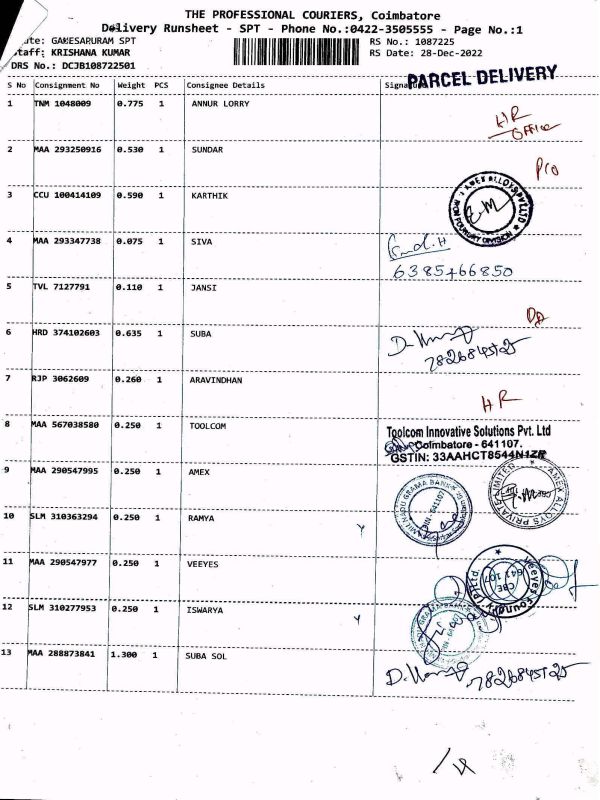 THE PROFESSIONAL COURIERS, Coimbatore
Delivery Runsheet - SPT - Phone No.:0422-3505555 - Page No.:1
ute: GANESAPURAM SPT
RS No.: 1087225
taff: KRISHANA KUMAR
RS Date: 28-Dec-2022
DRS No.: DCJB108722501
PARCEL DELIVERY
S No Consignment No Weight PCS Consignee Details Signature
1 TNM 1048009 0.775 1 ANNUR LORRY
HR
office
2 MAA 293250916 0.530 1 SUNDAR
Pro
3 CCU 100414109 0.590 1 KARTHIK
AMEX ALLOYS PVT LTD
FOUNDRY DIVISION
4 MAA 293347738 0.075 1 SIVA
6385466850
5 TVL 7127791 0.110 1 JANSI
6 HRD 374102603 0.635 1 SUBA
7826845725
7 RJP 3062609 0.260 1 ARAVINDHAN
HR
8 MAA 567038580 0.250 1 TOOLCOM
Toolcom Innovative Solutions Pvt. Ltd
Coimbatore - 641107.
GSTIN: 33AAHCT8544N1ZR
9 MAA 290547995 0.250 1 AMEX
TAMIL NADU GRAMA BANK
AMEX ALLOYS PRIVATE LIMITED
10 SLM 310363294 0.250 1 RAMYA
Y
11 MAA 290547977 0.250 1 VEEYES
Veeyes Foundry
CBE
641 107
12 SLM 310277953 0.250 1 ISWARYA
Y
13 MAA 288873841 1.300 1 SUBA SOL
7826845725